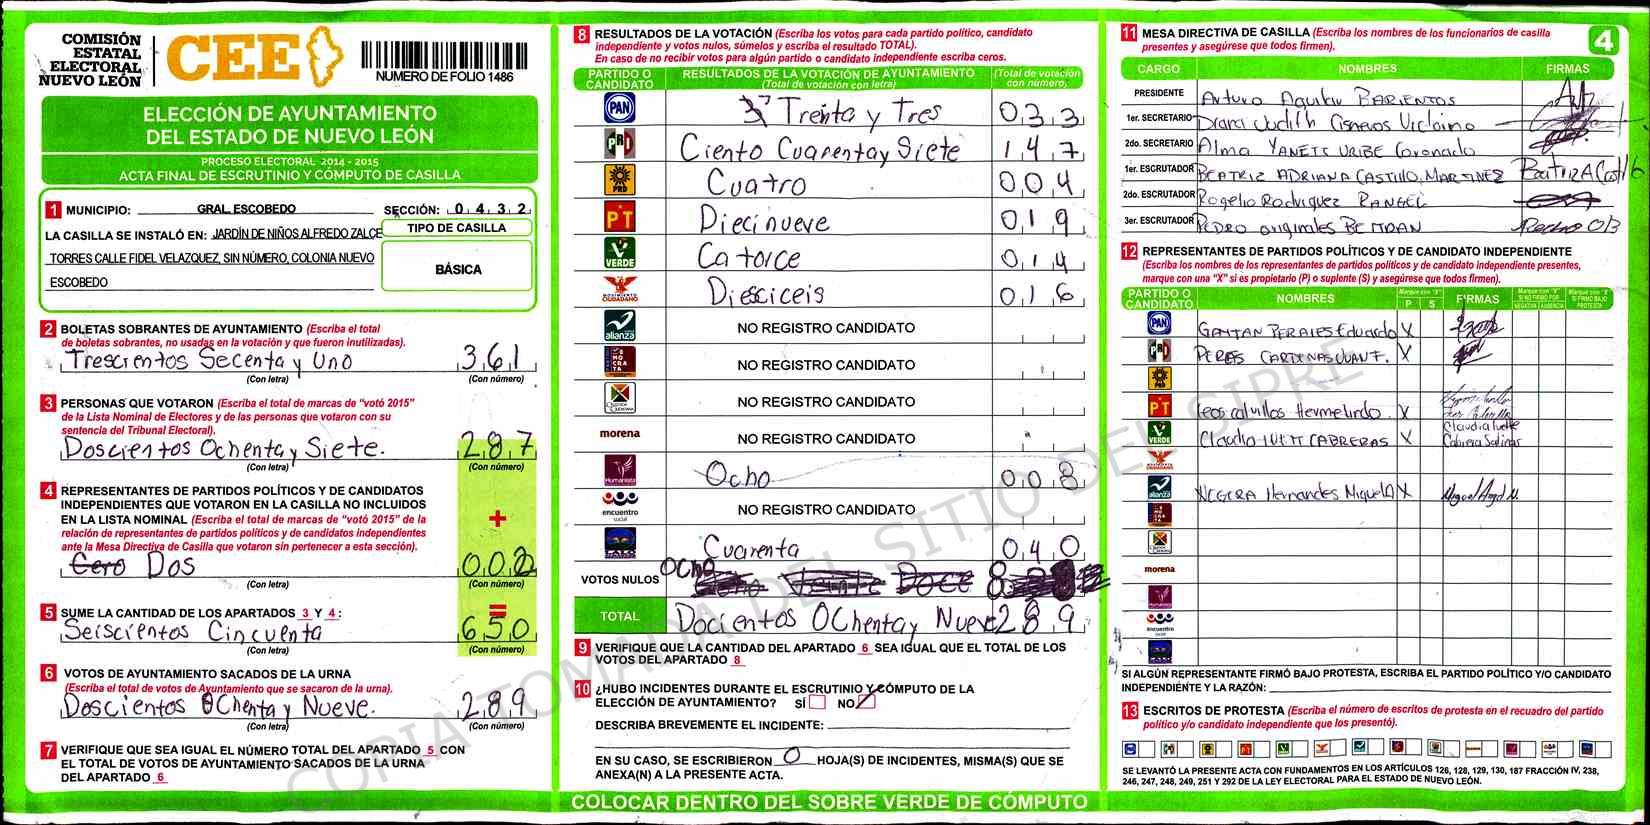 COMISIÓN
ESTATAL
ELECTORAL
NUEVO LEÓN
CEE
NUMERO DE FOLIO 1486
ELECCIÓN DE AYUNTAMIENTO
DEL ESTADO DE NUEVO LEÓN
PROCESO ELECTORAL 2014 - 2015
ACTA FINAL DE ESCRUTINIO Y CÓMPUTO DE CASILLA
1 MUNICIPIO: GRAL. ESCOBEDO SECCIÓN: 0 4 3 2
LA CASILLA SE INSTALÓ EN: JARDÍN DE NIÑOS ALFREDO ZALCE
TORRES CALLE FIDEL VELAZQUEZ, SIN NÚMERO, COLONIA NUEVO
ESCOBEDO
TIPO DE CASILLA
BÁSICA
2 BOLETAS SOBRANTES DE AYUNTAMIENTO (Escriba el total
de boletas sobrantes, no usadas en la votación y que fueron inutilizadas).
Trescientos Secenta y Uno 3 6 1
(Con letra) (Con número)
3 PERSONAS QUE VOTARON (Escriba el total de marcas de "votó 2015"
de la Lista Nominal de Electores y de las personas que votaron con su
sentencia del Tribunal Electoral).
Doscientos Ochenta y Siete. 2 8 7
(Con letra) (Con número)
4 REPRESENTANTES DE PARTIDOS POLÍTICOS Y DE CANDIDATOS
INDEPENDIENTES QUE VOTARON EN LA CASILLA NO INCLUIDOS
EN LA LISTA NOMINAL (Escriba el total de marcas de "votó 2015" de la
relación de representantes de partidos políticos y de candidatos independientes
ante la Mesa Directiva de Casilla que votaron sin pertenecer a esta sección).
+
Cero Dos 0 0 2
(Con letra) (Con número)
=
5 SUME LA CANTIDAD DE LOS APARTADOS 3 Y 4:
Seiscientos Cincuenta 6 5 0
(Con letra) (Con número)
6 VOTOS DE AYUNTAMIENTO SACADOS DE LA URNA
(Escriba el total de votos de Ayuntamiento que se sacaron de la urna).
Doscientos Ochenta y Nueve. 2 8 9
(Con letra) (Con número)
7 VERIFIQUE QUE SEA IGUAL EL NÚMERO TOTAL DEL APARTADO 5 CON
EL TOTAL DE VOTOS DE AYUNTAMIENTO SACADOS DE LA URNA
DEL APARTADO 6
8 RESULTADOS DE LA VOTACIÓN (Escriba los votos para cada partido político, candidato
independiente y votos nulos, súmelos y escriba el resultado TOTAL).
En caso de no recibir votos para algún partido o candidato independiente escriba ceros.
PARTIDO O CANDIDATO RESULTADOS DE LA VOTACIÓN DE AYUNTAMIENTO (Total de votación con letra) (Total de votación con número)
PAN Treinta y Tres 0 3 3
PRD Ciento Cuarenta y Siete 1 4 7
PRD Cuatro 0 0 4
PT Diecinueve 0 1 9
VERDE Catorce 0 1 4
MOVIMIENTO CIUDADANO Diesciceis 0 1 6
alianza NO REGISTRO CANDIDATO
DEMOCRATA NO REGISTRO CANDIDATO
NO REGISTRO CANDIDATO
morena NO REGISTRO CANDIDATO
Humanista Ocho 0 0 8
encuentro social NO REGISTRO CANDIDATO
Cuarenta 0 4 0
VOTOS NULOS Ocho 8
TOTAL Docientos Ochenta y Nueve 2 8 9
9 VERIFIQUE QUE LA CANTIDAD DEL APARTADO 6 SEA IGUAL QUE EL TOTAL DE LOS
VOTOS DEL APARTADO 8
10 ¿HUBO INCIDENTES DURANTE EL ESCRUTINIO Y CÓMPUTO DE LA
ELECCIÓN DE AYUNTAMIENTO? SÍ NO
DESCRIBA BREVEMENTE EL INCIDENTE:
EN SU CASO, SE ESCRIBIERON 0 HOJA(S) DE INCIDENTES, MISMA(S) QUE SE
ANEXA(N) A LA PRESENTE ACTA.
COLOCAR DENTRO DEL SOBRE VERDE DE CÓMPUTO
11 MESA DIRECTIVA DE CASILLA (Escriba los nombres de los funcionarios de casilla
presentes y asegúrese que todos firmen).
4
CARGO NOMBRES FIRMAS
PRESIDENTE Arturo Aguilar BARIENTOS
1er. SECRETARIO Diana Judith Cisneros Victoino
2do. SECRETARIO Alma YANETT URIBE Coronado
1er. ESCRUTADOR BEATRIZ ADRIANA CASTILLO MARTINEZ
2do. ESCRUTADOR Rogelio Rodriguez RANGEL
3er. ESCRUTADOR PEDRO originales BE Pedro OB
12 REPRESENTANTES DE PARTIDOS POLÍTICOS Y DE CANDIDATO INDEPENDIENTE
(Escriba los nombres de los representantes de partidos políticos y de candidato independiente presentes,
marque con una "X" si es propietario (P) o suplente (S) y asegúrese que todos firmen).
PARTIDO O CANDIDATO NOMBRES Marque con "X" P S FIRMAS Marque con "X" SI NO FIRMÓ POR NEGATIVA AUSENCIA Marque con "X" SI FIRMÓ BAJO PROTESTA
PAN GAYTAN PERALES Eduardo X
PERES CARDENAS JUAN F. X
PRD
PT Leos calvillos Hermelindo X
VERDE Claudia IVETT CABRERAS X Claudia Ivette Cabrera Salinas
alianza NEGERA Hernandes Miguel A X Miguel Angel N.
morena
encuentro social
SI ALGÚN REPRESENTANTE FIRMÓ BAJO PROTESTA, ESCRIBA EL PARTIDO POLÍTICO Y/O CANDIDATO
INDEPENDIENTE Y LA RAZÓN:
13 ESCRITOS DE PROTESTA (Escriba el número de escritos de protesta en el recuadro del partido
político y/o candidato independiente que los presentó).
SE LEVANTÓ LA PRESENTE ACTA CON FUNDAMENTOS EN LOS ARTÍCULOS 126, 128, 129, 130, 187 FRACCIÓN IV, 238,
246, 247, 248, 249, 251 Y 292 DE LA LEY ELECTORAL PARA EL ESTADO DE NUEVO LEÓN.
COPIA TOMADA DEL SITIO DEL SIPRE